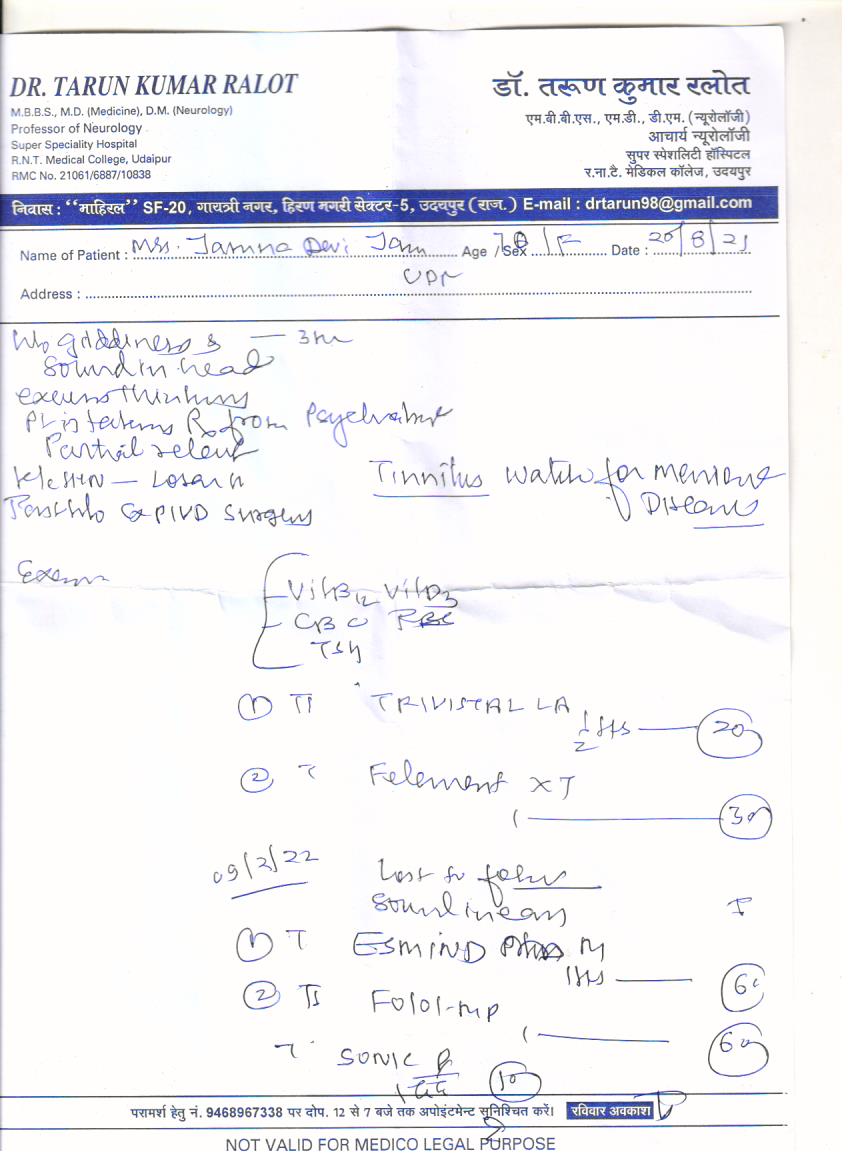 DR. TARUN KUMAR RALOT
M.B.B.S., M.D. (Medicine), D.M. (Neurology)
Professor of Neurology
Super Speciality Hospital
R.N.T. Medical College, Udaipur
RMC No. 21061/6887/10838
डॉ. तरूण कुमार रलोत
एम.बी.बी.एस., एम.डी., डी.एम. (न्यूरोलॉजी)
आचार्य न्यूरोलॉजी
सुपर स्पेशलिटी हॉस्पिटल
र.ना.टै. मेडिकल कॉलेज, उदयपुर
निवास : "माहिरल" SF-20, गायत्री नगर, हिरण मगरी सेक्टर-5, उदयपुर (राज.) E-mail : drtarun98@gmail.com
Name of Patient : Mrs. Jamna Devi Jain Age / Sex 70 / F Date : 20/8/21
Address : UDR
H/o giddiness & — 3m
Sound in head
excess thinking
Pt is taking Rx from Psychiatrist
Partial relief
K/c HTN — Losar H
Past H/o PIVD Surgery
Tinnitus watch for meniere
Disease
Exam
Vit B12 Vit D3
CBC
TSH
① T TRIVISTAL LA
1/2 HS — 20
② T Felement XT
1 — 30
09/2/22
Sound in ears
① T ESMIND Plus M
1 HS — 60
② T Folol-mp
1 — 60
T SONIC P
10
परामर्श हेतु नं. 9468967338 पर दोप. 12 से 7 बजे तक अपोइंटमेन्ट सुनिश्चित करें। रविवार अवकाश
NOT VALID FOR MEDICO LEGAL PURPOSE